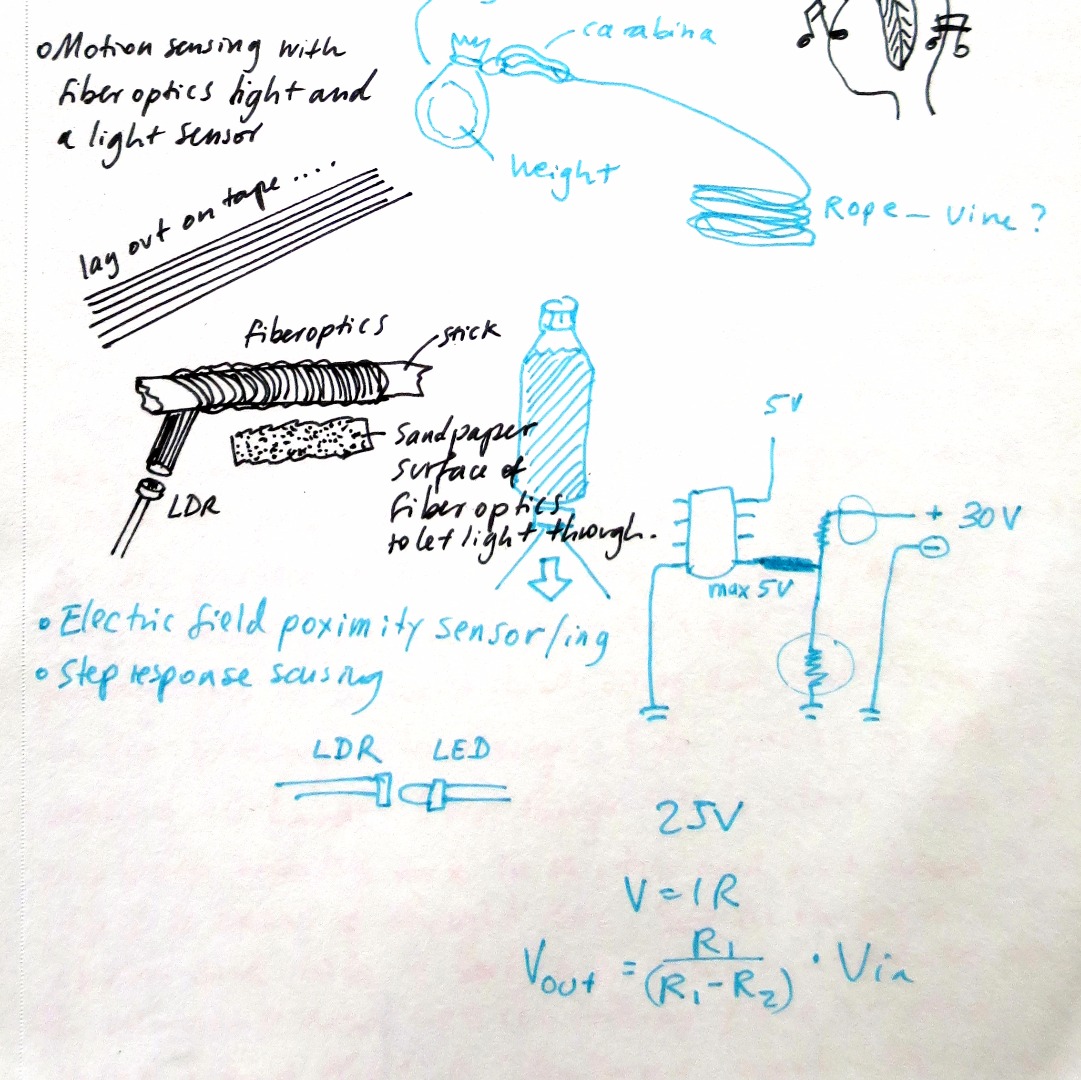 carabina
o Motion sensing with
fiber optics light and
a light sensor
weight
lay out on tape ....
Rope - vine?
fiberoptics
stick
5V
Sandpaper
surface of
fiber optics
to let light through.
LDR
+ 30V
-
max 5V
• Electric field poximity sensor/ing
o Step response sensing
LDR LED
25V
V = IR
Vout = R1/(R1-R2) · Vin